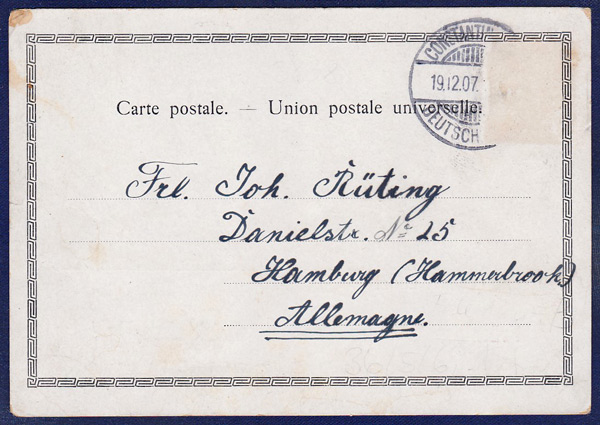 CONSTANTI
19.12.07.
DEUTSCH
Carte postale. — Union postale universelle.
Frl. Joh. Rüting
Danielstr. No 25
Hamburg (Hammerbrook)
Allemagne.